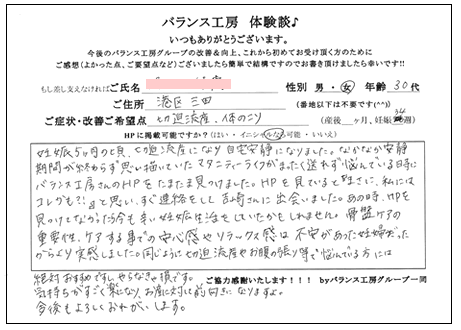 バランス工房 体験談♪
いつもありがとうございます。
今後のバランス工房グループの改善&向上、これから初めてお受け頂く方のために
ご感想(よかった点、ご要望点など)ございましたら簡単で結構ですのでお書き頂けましたら幸いです!!
もし差し支えなければご氏名 性別 男・女 年齢 30代
ご住所 港区 三田 (番地以下は不要です(^^))
ご症状・改善ご希望点 切迫流産、体のこり (産後 ヶ月、妊娠 週)
HPに掲載可能ですか?(はい・イニシャルなら可能・いいえ)
妊娠5ヶ月の頃、切迫流産になり自宅安静になりました。なかなか安静
期間が終わらず思い描いていたマタニティーライフがまったく送れず悩んでいる時に
バランス工房さんのHPをたまたま見つけました。HPを見ていると酷さに、私には
コレかも?!と思い、すぐ連絡をし 先生に出会いました。あの時、HPを
見つけてなかったら今も辛い妊娠生活をしていたかもしれません。骨盤ケアの
重要性、ケアする事での安心感やリラックス感は不安があった妊婦だった
からより実感しました。同じように切迫流産やお腹の張り等で悩んでる方には
絶対おすすめですし、やらなきゃ損です。
気持ちがすごく楽になり、お産に対して前向きになりますよ。
今後もよろしくおねがいします。
ご協力感謝いたします!!! byバランス工房グループ一同